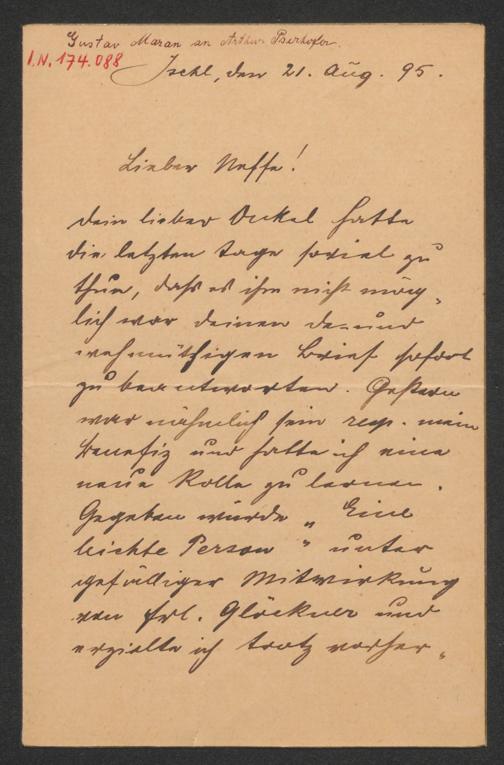 Gustav Maran an Arthur Pserhofer.
I.N. 174.088
Ischl, den 21. Aug. 95.
Lieber Neffe!
Dein lieber Onkel hatte
die letzten Tage soviel zu
thun, daß es ihm nicht mög„
lich war Deinen de- und
wehmüthigen Brief sofort
zu beantworten. Gestern
war nähmlich sein resp. mein
Benefiz und hatte ich eine
neue Rolle zu lernen.
Gegeben wurde „Eine
leichte Person" unter
gefälliger Mitwirkung
von Frl. Glöckner und
erzielte ich trotz vorher„